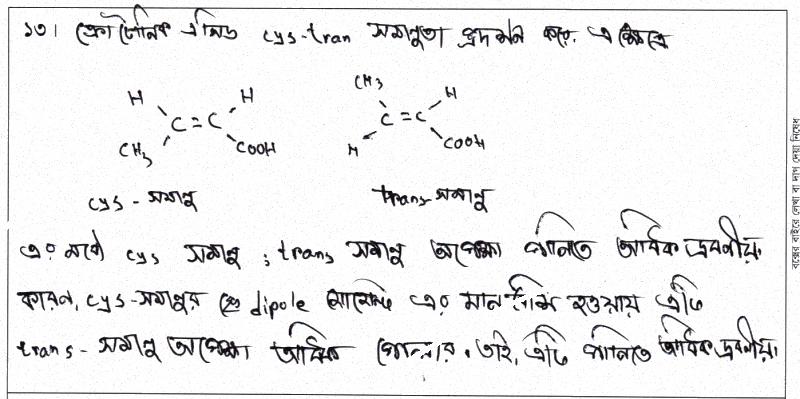 ১৩। ক্রোটোনিক এসিড cys-tran সমাণুতা প্রদর্শন করে. এক্ষেত্রে
H H CH3 H
C = C C = C
CH3 COOH H COOH
cys - সমাণু trans-সমাণু
এর মধ্যে cys সমাণু ; trans সমাণু অপেক্ষা পানিতে অধিক দ্রবনীয়.
কারন, cys-সমাণুর dipole মোমেন্ট এর মান বেশি হওয়ায় এটি
trans - সমাণু অপেক্ষা অধিক পোলার. তাই, এটি পানিতে অধিক দ্রবনীয়।
বক্সের বাইরে লেখা বা দাগ দেয়া নিষেধ